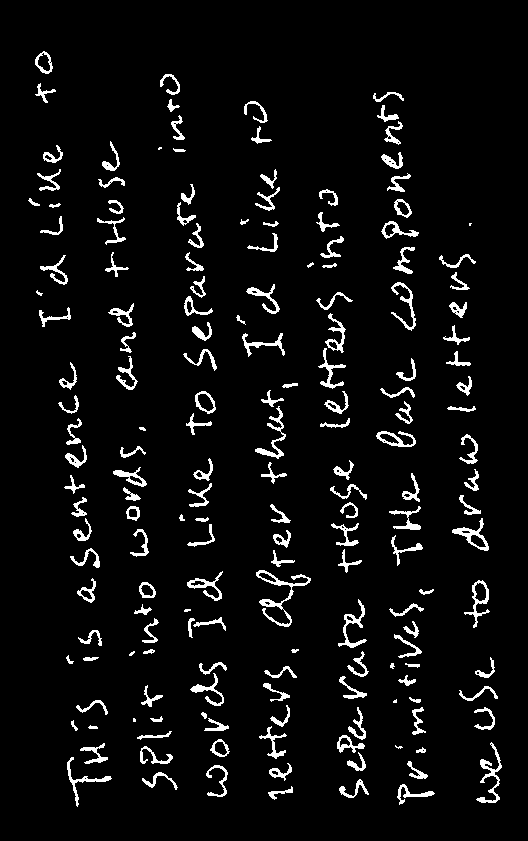 THis is a sentence I'd Like to
split into words. and tHose
words I'd Like to separate into
letters. after that, I'd Like to
separate tHose letters into
Primitives, THe base components
we use to draw letters.